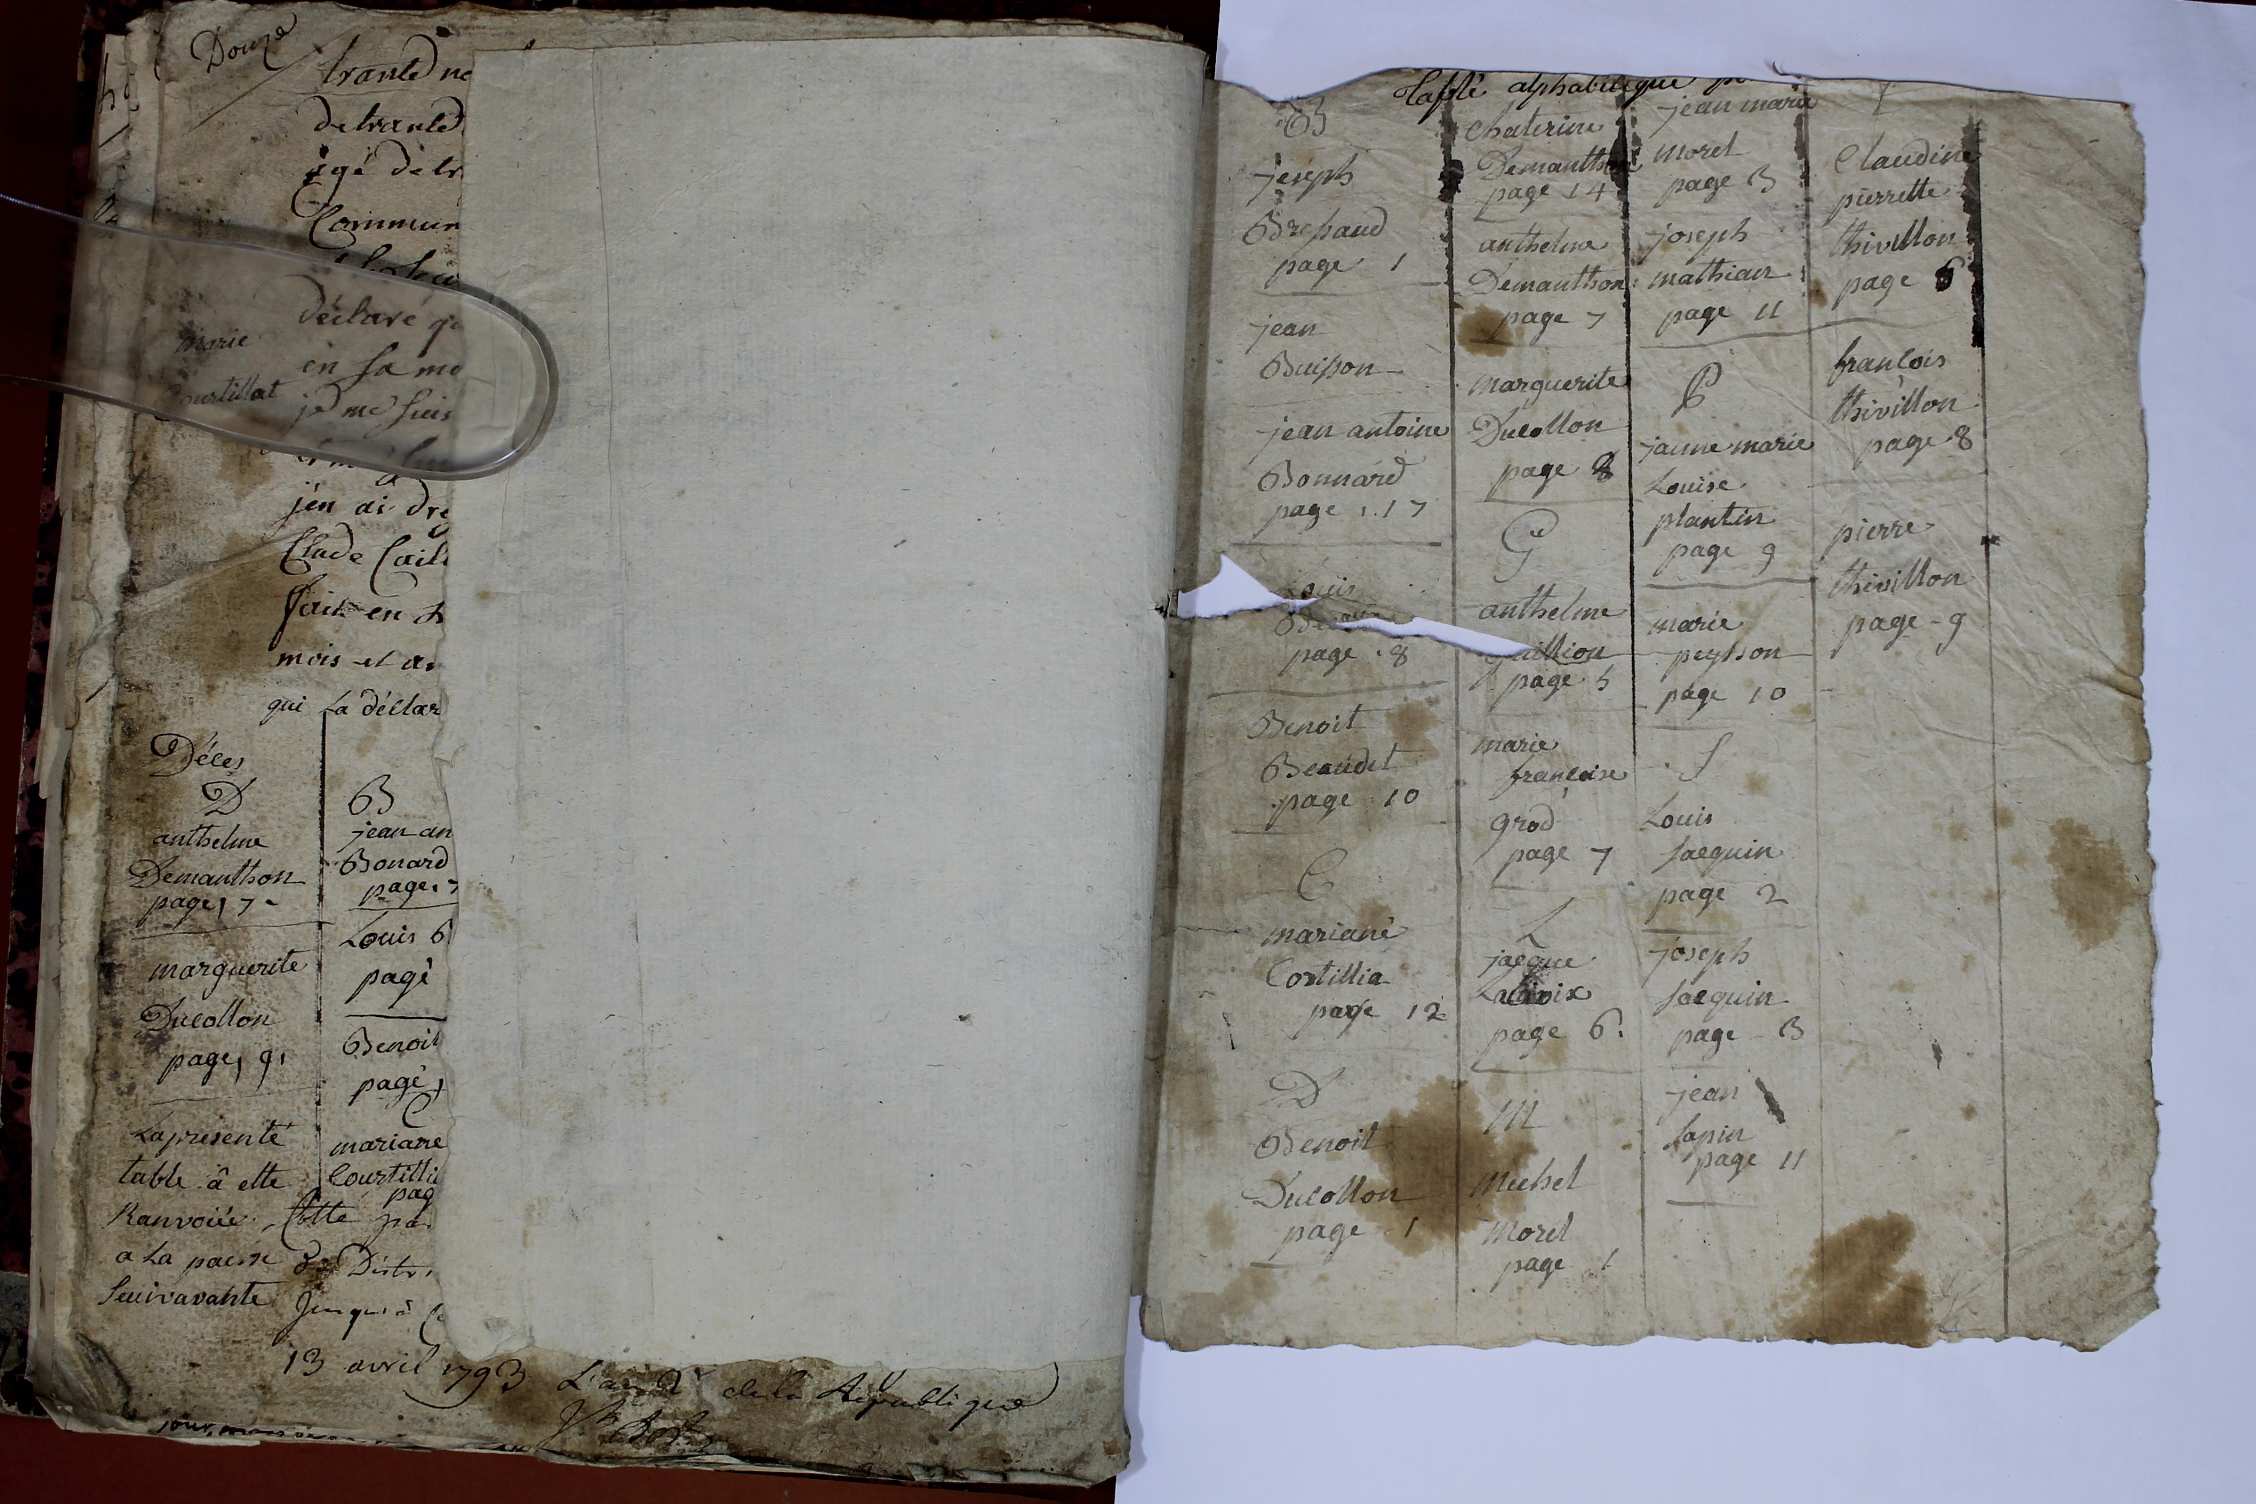 Douze
trante
de trante
agé de
Commun
déclaré
marie
en sa
Courtillat
je me suis
j'en ai
Clade
fait en
mois et
qui La déclar
Déces
D
anthelme
Demanthon
page, 7
marguerite
Ducollon
page, 9,
Laprésente
table â ette
Ranvoiée
a La pacsse
Suivavante
B
jean an
Bonard
page, 7
Louis
page
Benoit
page,
C
mariane
Courtillia
pag
Cotté par
du Distr
Jusqu'à
13 avril 1793 L'an 2 de la République
Table alphabetique
B
joseph
Bressaud
page 1
jean
Buisson
jean antoine
Bonnard
page 17
Louis
page 8
Benoit
Beaudet
page 10
C
mariane
Cortillia
page 12
D
Benoit
Ducollon
page 1
Chaterine
Demanthon
page 14
anthelme
Demanthon
page 7
marguerite
Ducollon
page 8
G
anthelme
guillion
page 5
marie
francoise
grod
page 7
L
jacque
Lacroix
page 6
M
Michel
Morel
page 1
jean marie
morel
page 3
joseph
mathian
page 11
P
janne marie
Louise
plantin
page 9
marie
peysson
page 10
S
Louis
Saequin
page 2
joseph
Saequin
page 3
jean
Sapin
page 11
Claudine
pierrette
thivillon
page 6
francois
thivillon
page 8
pierre
thivillon
page 9